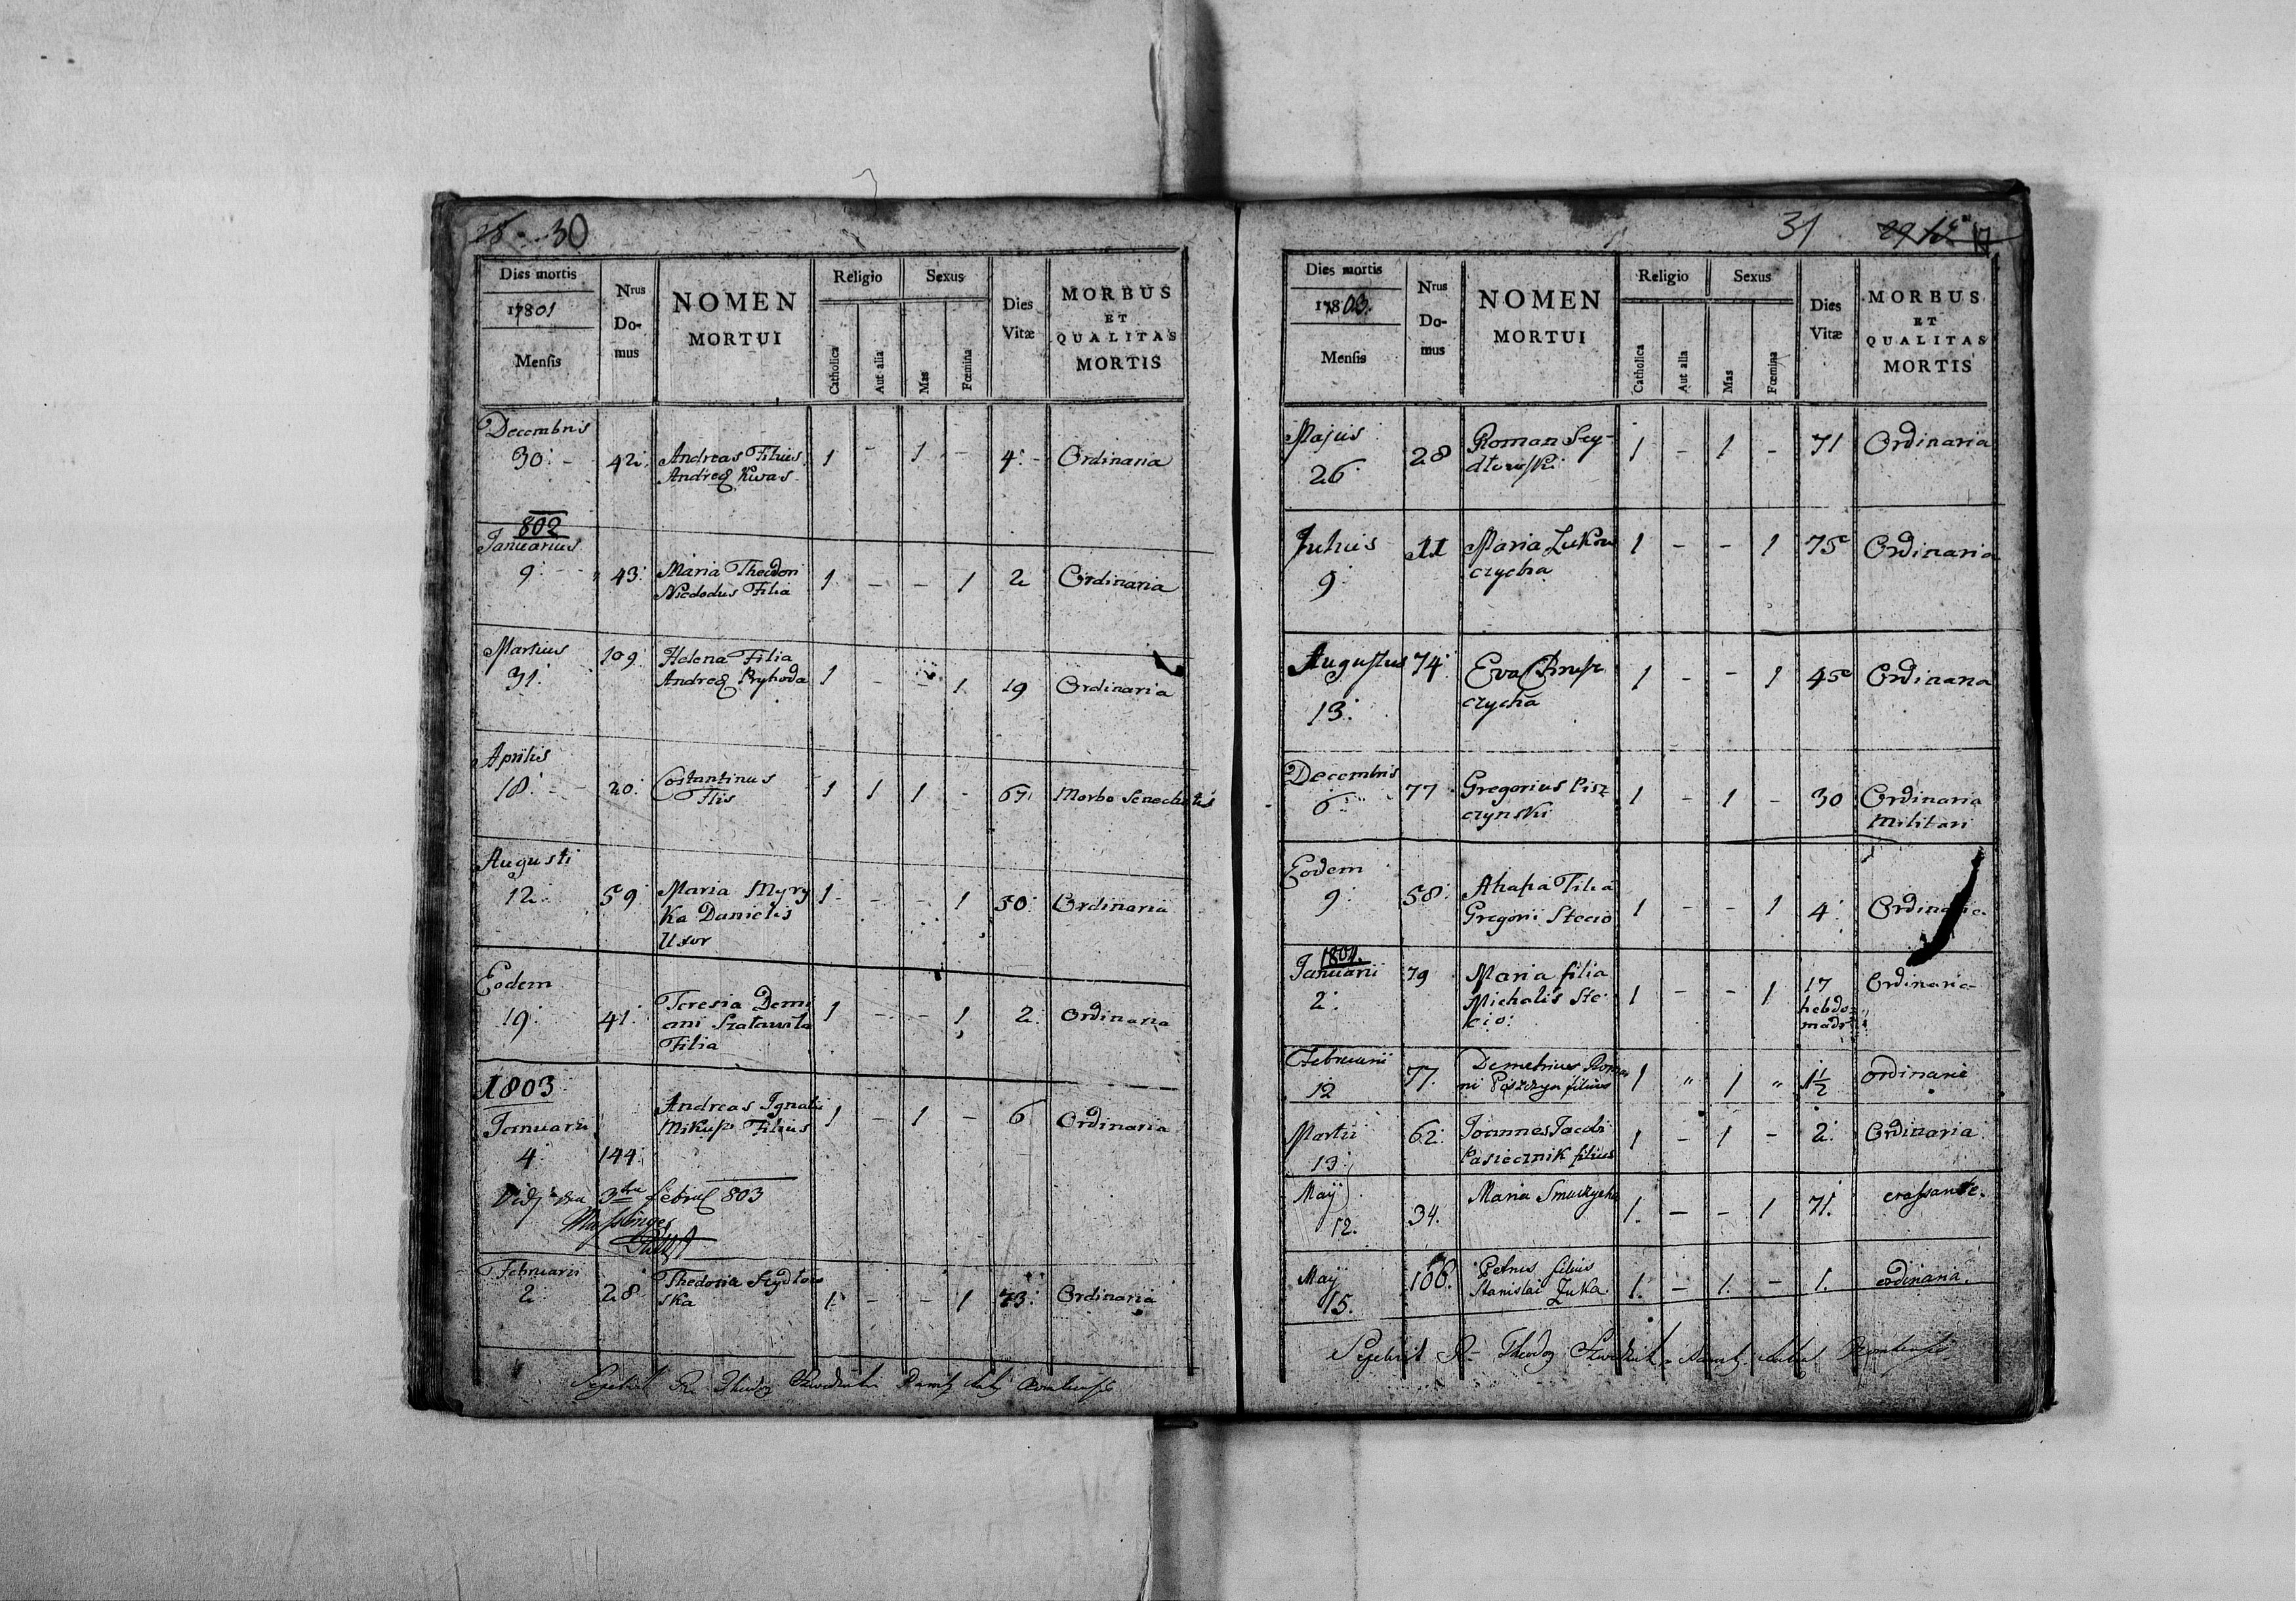 30
Dies mortis
Nrus Domus
NOMEN MORTUI
Religio
Sexus
Dies Vitæ
MORBUS ET QUALITAS MORTIS
17801
Mensis
Catholica
Aut alia
Mas
Fœmina
Decembris
30 42 Andreas Filius 1 - 1 - 4 Ordinaria
Andreæ Kwas
802
Januarius
9 43 Maria Theodori 1 - - 1 2 Ordinaria
Niedodus Filia
Martius 109 Helena Filia
31 Andreæ Pryhoda 1 - - 1 19 Ordinaria
Aprilis
18 20 Costantinus 1 1 1 - 67 Morbo Senectutis
Flis
Augusti
12 59 Maria Myry 1 - - 1 50 Ordinaria
ka Danielis
Uxor
Eodem
19 41 Teresia Demi 1 - - 1 2 Ordinaria
ani Szatawita
Filia
1803
Januarii Andreas Ignatii 1 - 1 - 6 Ordinaria
Mikuś Filius
4 144
3tia 803
Februarii
2 28 Thedosia Szydłow 1 - - 1 73 Ordinaria
ska
Sepelivit
31 29 17
Dies mortis
Nrus Domus
NOMEN MORTUI
Religio
Sexus
Dies Vitæ
MORBUS ET QUALITAS MORTIS
17803.
Mensis
Catholica
Aut alia
Mas
Fœmina
Majus 28 Roman Szy- 1 - 1 - 71 Ordinaria
26 dłowski
Julius 11 Maria Lukow 1 - - 1 75 Ordinaria
9 czycha
Augustus 74 Eva 1 - - 1 45 Ordinaria
13 czycha
Decembris 77 Gregorius Pisz 1 - 1 - 30 Ordinaria
6 czynski Militari
Eodem
9 58 Ahafia Filia 1 - - 1 4 Ordinaria
Gregorii Stecio
1804.
Januarii 79 Maria filia 1 - - 1 17 Ordinaria
2 Michalis Ste- hebdo-
cio madr
Februarii 77. Demetrius Roma 1 " 1 " 1½ ordinarie
12 ni filius
Martii 62 Joannes Jacobi 1 - 1 - 2 Ordinaria
13 Pasiecznik filius
Maij 34. Maria Smuczycha 1. - - 1 71. crassante.
12.
Maij 106. Petrus filius 1. - 1. - 1. ordinaria.
15. Stanislai Zuka
Sepelivit